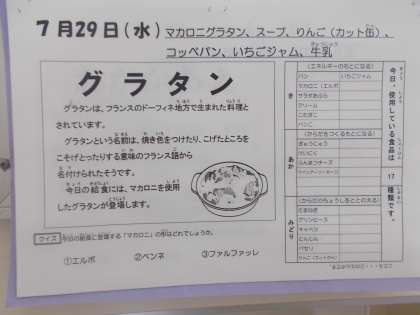 7月29日(水) マカロニグラタン、スープ、りんご(カット缶)、
コッペパン、いちごジャム、牛乳
グラタン
グラタンは、フランスのドーフィネ地方で生まれた料理と
されています。
グラタンという名前は、焼き色をつけたり、こげたところを
こそげとったりする意味のフランス語から
名付けられたそうです。
今日の給食には、マカロニを使用
したグラタンが登場します。
クイズ 今日の給食に登場する「マカロニ」の形はどれでしょうか。
①エルボ ②ペンネ ③ファルファッレ
今日、使用している食品は 17 種類です。
き
(エネルギーのもとになる)
パン いちごジャム
マカロニ(エルボ
サラダあぶら
クリーム
こむぎこ
パンこ
あか
(からだをつくるもとになる)
ぎゅうにゅう
とりにく
ふんまつチーズ
みどり
(からだのちょうしをととのえる)
たまねぎ
グリンピース
キャベツ
にんじん
パセリ
りんご(カットかん)